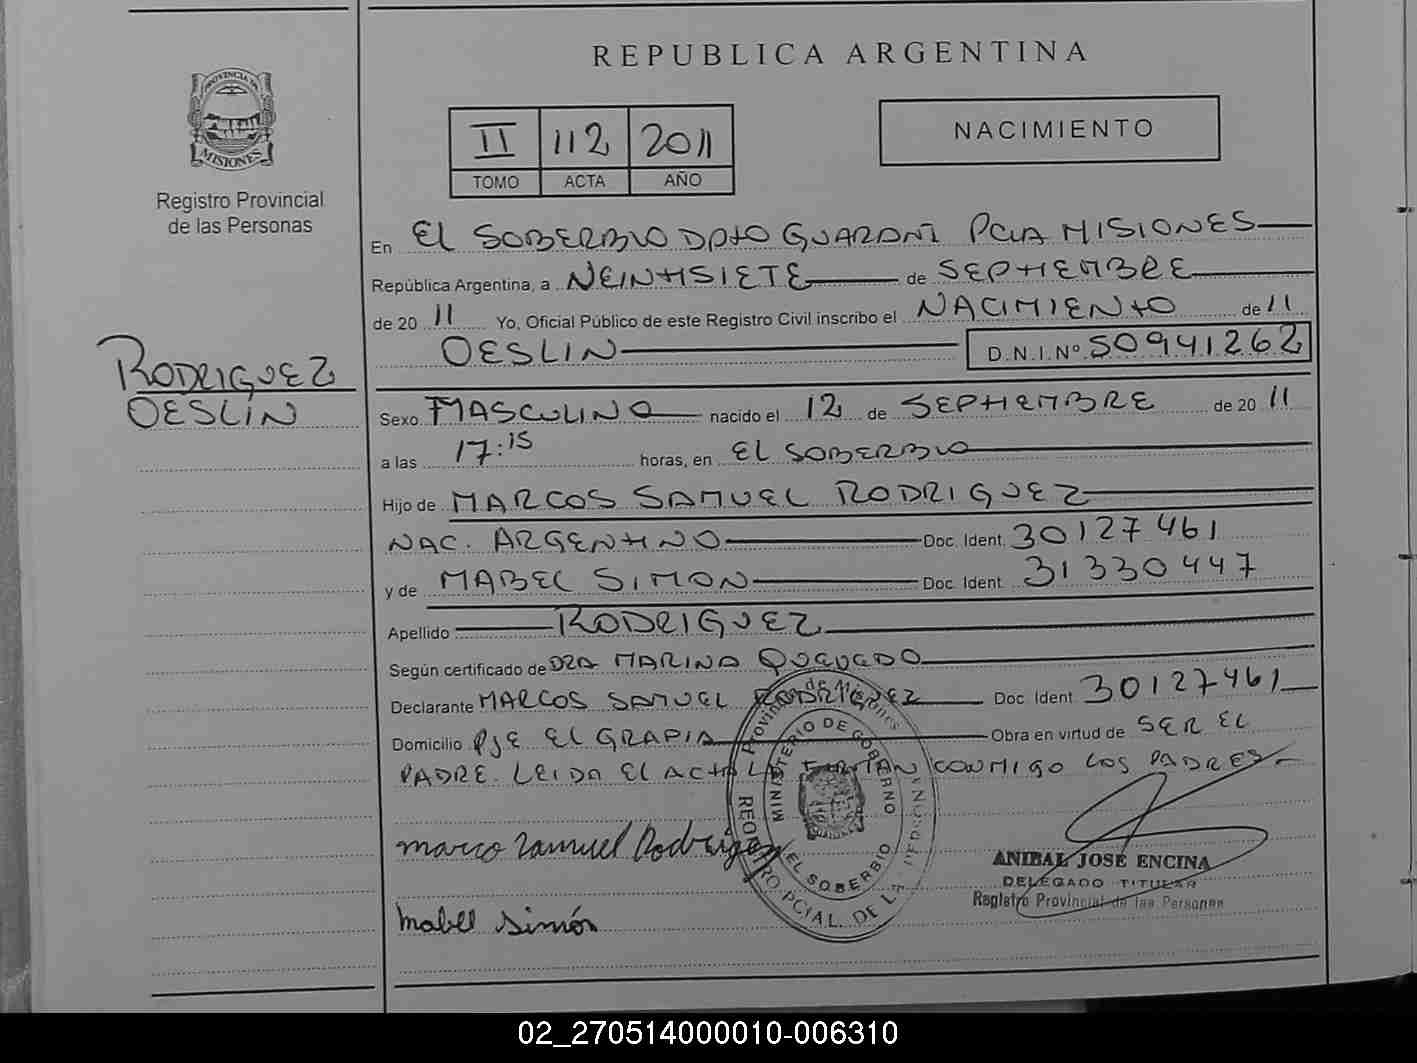 PROVINCIA DE
MISIONES
Registro Provincial
de las Personas
RODRIGUEZ
OESLIN
REPUBLICA ARGENTINA
II 112 2011
TOMO ACTA AÑO
NACIMIENTO
En EL SOBERBIO DPTO GUARANI PCIA MISIONES
República Argentina, a VEINTISIETE de SEPTIEMBRE
de 20 11 Yo, Oficial Público de este Registro Civil inscribo el NACIMIENTO de 11
OESLIN D.N.I.Nº 50941262
Sexo MASCULINO nacido el 12 de SEPTIEMBRE de 20 11
a las 17:15 horas, en EL SOBERBIO
Hijo de MARCOS SAMUEL RODRIGUEZ
NAC. ARGENTINO Doc. Ident. 30127461
y de MABEL SIMON Doc. Ident. 31330447
Apellido RODRIGUEZ
Según certificado de DRA MARINA QUEVEDO
Declarante MARCOS SAMUEL RODRIGUEZ Doc. Ident. 30127461
Domicilio PJE EL GRAPIA Obra en virtud de SER EL
PADRE. LEIDA EL ACTA LA FIRMAN CONMIGO LOS PADRES
Provincia de Misiones
MINISTERIO DE GOBIERNO
EL SOBERBIO
REGISTRO PCIAL. DE L PERSON
marco Samuel Rodriguez
Mabel Simón
ANIBAL JOSÉ ENCINA
DELEGADO TITULAR
Registro Provincial de las Personas
02_270514000010-006310